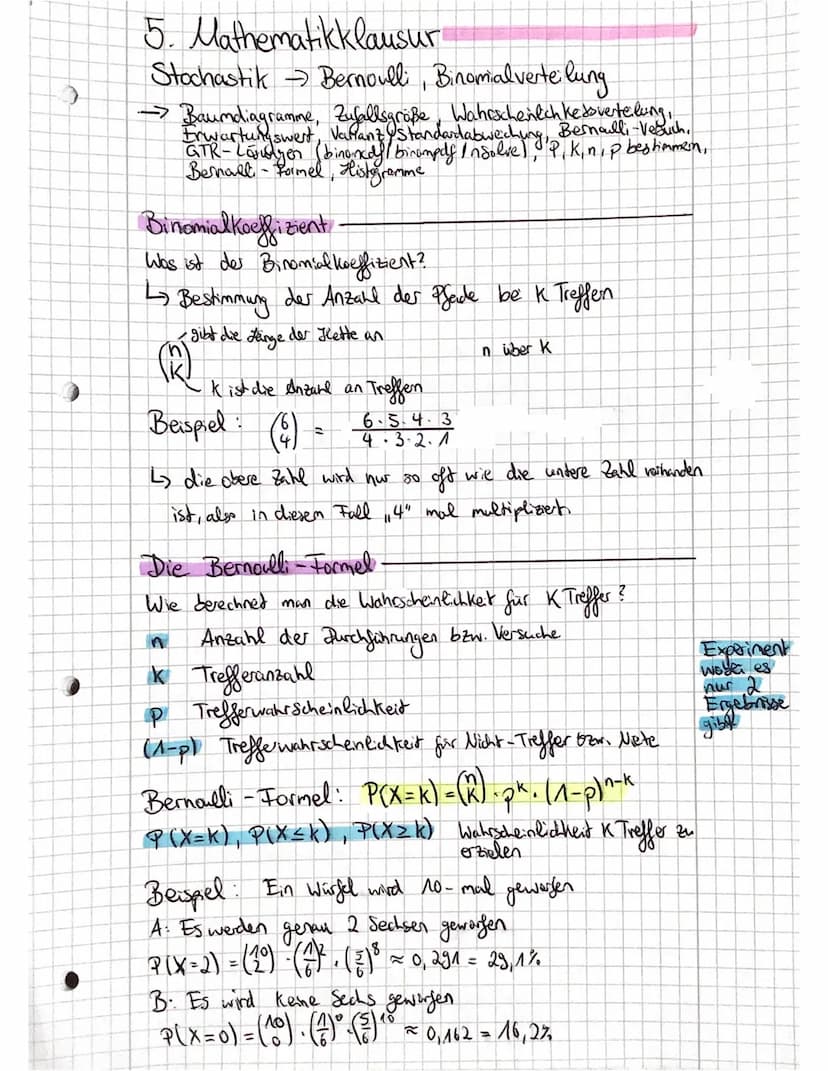 5. Mathematikklausur
Stochastik → Bernoulli, Binomialverteilung
→ Baumdiagramme, Zufallsgröße, Wahrscheinlichkeitsverteilung,
Erwartungswert, Varianz, Standardabweichung, Bernoulli-Versuch,
GTR-Lösungen (binomcdf/binompdf/nSolve), P, K, n, p bestimmen,
Bernoulli-Formel, Histogramme
Binomialkoeffizient
Was ist der Binomialkoeffizient?
↳ Bestimmung der Anzahl der Pfade bei K Treffern
gibt die Länge der Kette an
(n k) n über K
K ist die Anzahl an Treffern
Beispiel: (6 4) = 6·5·4·3 / 4·3·2·1
↳ die obere Zahl wird nur so oft wie die untere Zahl vorhanden
ist, also in diesem Fall „4" mal multipliziert.
Die Bernoulli-Formel
Wie berechnet man die Wahrscheinlichkeit für K Treffer?
n Anzahl der Durchführungen bzw. Versuche
k Trefferanzahl
p Trefferwahrscheinlichkeit
(1-p) Trefferwahrscheinlichkeit für Nicht-Treffer bzw. Niete
Experiment
wobei es
nur 2
Ergebnisse
gibt
Bernoulli-Formel: P(X=k) = (n k) · p^k · (1-p)^n-k
P(X=k), P(X≤k), P(X≥k) Wahrscheinlichkeit K Treffer zu
erzielen
Beispiel: Ein Würfel wird 10-mal geworfen
A: Es werden genau 2 Sechsen geworfen
P(X=2) = (10 2) · (1/6)² · (5/6)⁸ ≈ 0,291 = 29,1%
B: Es wird keine Sechs geworfen
P(X=0) = (10 0) · (1/6)⁰ · (5/6)¹⁰ ≈ 0,162 = 16,2%